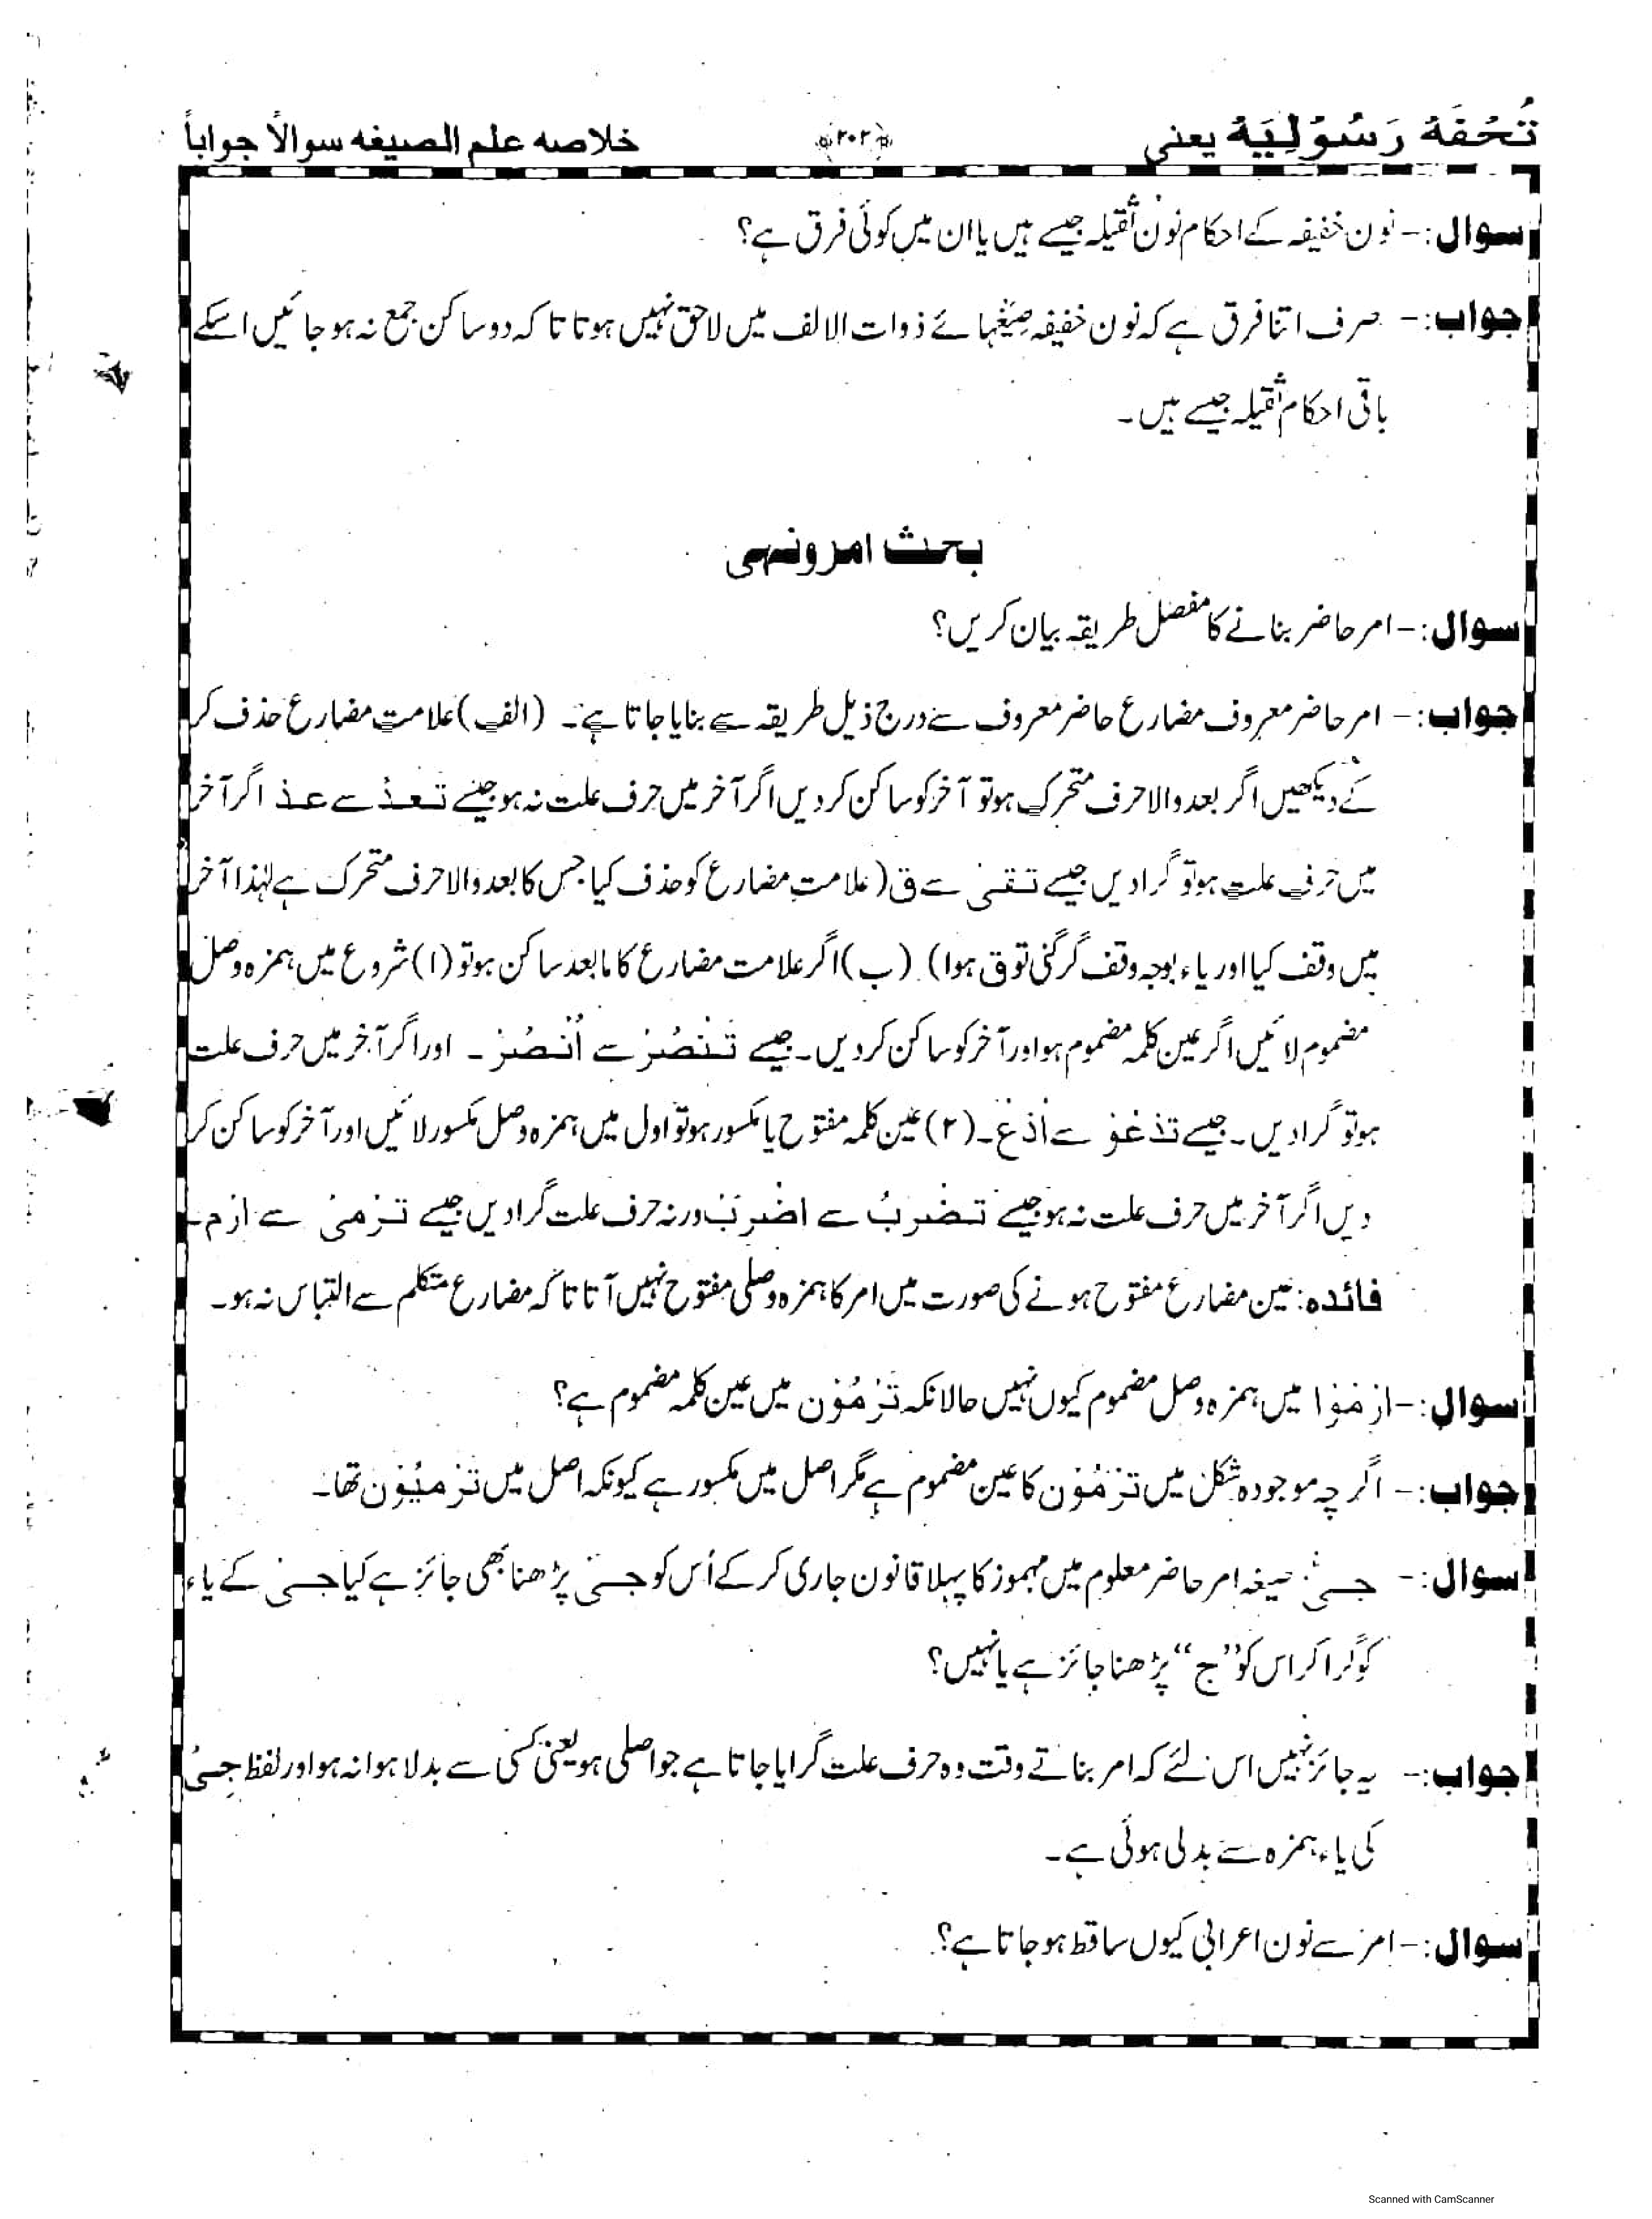 تُحْفَهْ رَسُوْلِيَهْ یعنی
﴿۲۰۲﴾
خلاصہ علم الصیغہ سوالاً جواباً
سوال:- نون خفیفہ کے احکام نون ثقیلہ جیسے ہیں یا ان میں کوئی فرق ہے؟
جواب:- صرف اتنا فرق ہے کہ نون خفیفہ صیغہائے ذوات الالف میں لاحق نہیں ہوتا تا کہ دو ساکن جمع نہ ہو جائیں اسکے
باقی احکام ثقیلہ جیسے ہیں۔
بحث امرونہی
سوال:- امر حاضر بنانے کا مفصل طریقہ بیان کریں؟
جواب:- امر حاضر معروف مضارع حاضر معروف سے درج ذیل طریقہ سے بنایا جاتا ہے۔ (الف) علامت مضارع حذف کر
کے دیکھیں اگر بعد والا حرف متحرک ہو تو آخر کو ساکن کر دیں اگر آخر میں حرف علت نہ ہو جیسے تعدْ سے عد اگر آخر
میں حرف علت ہو تو گرا دیں جیسے تقیْ سے ق (علامتِ مضارع کو حذف کیا جس کا بعد والا حرف متحرک ہے لہٰذا آخر
میں وقف کیا اور یاء بوجہ وقف گر گئی توق ہوا) (ب) اگر علامت مضارع کا مابعد ساکن ہو تو (۱) شروع میں ہمزہ وصل
مضموم لائیں اگر عین کلمہ مضموم ہو اور آخر کو ساکن کر دیں۔ جیسے تَنْصُرْ سے اُنْصُرْ۔ اور اگر آخر میں حرف علت
ہو تو گرا دیں۔ جیسے تدْعُوْ سے اُدْعُ۔ (۲) عین کلمہ مفتوح یا مکسور ہو تو اول میں ہمزہ وصل مکسور لائیں اور آخر کو ساکن کر
دیں اگر آخر میں حرف علت نہ ہو جیسے تضْرِبُ سے اضْرِبْ ورنہ حرف علت گرا دیں جیسے تَرْمیْ سے ارْمِ۔
فائدہ: عین مضارع مفتوح ہونے کی صورت میں امر کا ہمزہ وصلی مفتوح نہیں آتا تا کہ مضارع متکلم سے التباس نہ ہو۔
سوال:- ارْمُوْا میں ہمزہ وصل مضموم کیوں نہیں حالانکہ تَرْمُوْن میں عین کلمہ مضموم ہے؟
جواب:- اگر چہ موجودہ شکل میں تَرْمُوْن کا عین مضموم ہے مگر اصل میں مکسور ہے کیونکہ اصل میں تَرْمِيُوْن تھا۔
سوال:- جِئْ صیغہ امر حاضر معلوم میں مہموز کا پہلا قانون جاری کر کے اُس کو جیْ پڑھنا بھی جائز ہے کیا جیْ کے یاء
کو گرا کر اس کو ”ج“ پڑھنا جائز ہے یا نہیں؟
جواب:- یہ جائز نہیں اس لئے کہ امر بناتے وقت وہ حرف علت گرایا جاتا ہے جو اصلی ہو یعنی کسی سے بدلا ہوا نہ ہو اور لفظ جِیْ
کی یاء ہمزہ سے بدلی ہوئی ہے۔
سوال:- امر سے نون اعرابی کیوں ساقط ہو جاتا ہے؟
Scanned with CamScanner